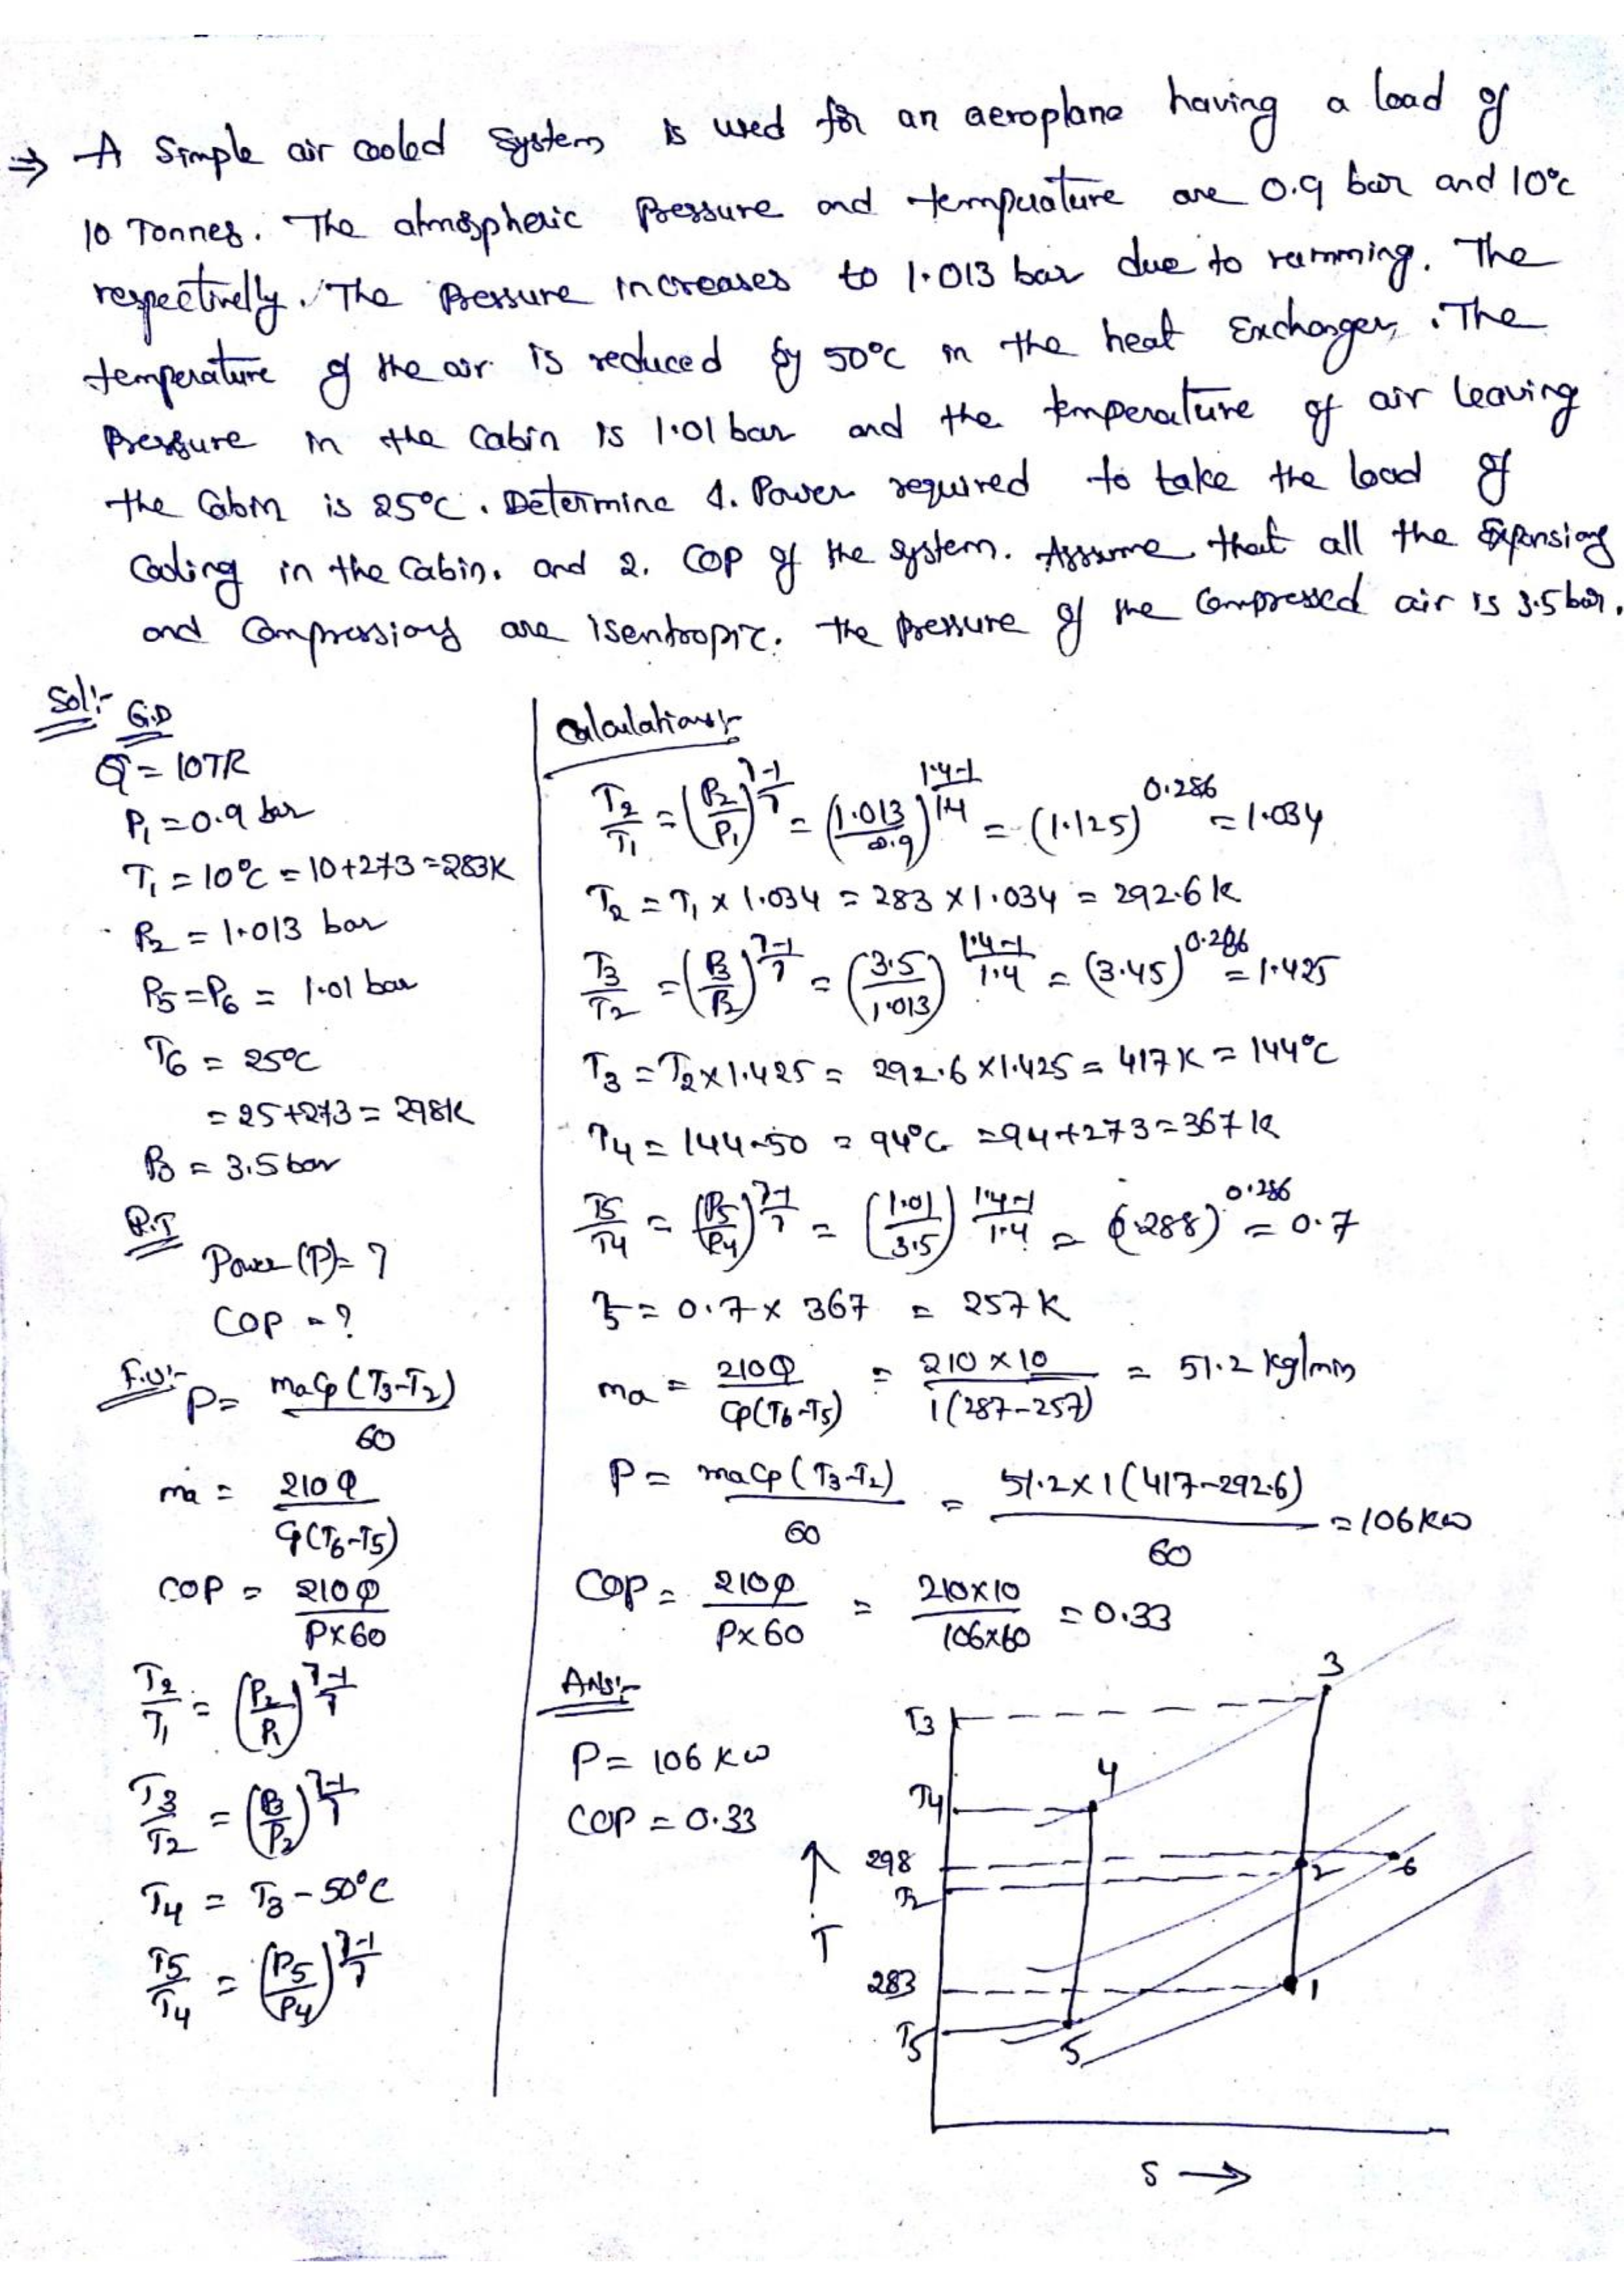 ⇒ A Simple air cooled system is used for an aeroplane having a load of
10 Tonnes. The atmospheric Pressure and temperature are 0.9 bar and 10°c
respectively. The Pressure increases to 1.013 bar due to ramming. The
temperature of the air is reduced by 50°c in the heat Exchanger. The
Pressure in the Cabin is 1.01 bar and the temperature of air leaving
the Cabin is 25°C. Determine 1. Power required to take the load of
Cooling in the Cabin. and 2. COP of the system. Assume that all the Expansions
and Compressions are isentropic. The pressure of the compressed air is 3.5 bar.
Sol:-
G.D
Q = 10TR
P1 = 0.9 bar
T1 = 10°C = 10+273 = 283K
P2 = 1.013 bar
P5 = P6 = 1.01 bar
T6 = 25°C
= 25+273 = 298K
P3 = 3.5 bar
R.T
Power (P) = ?
COP = ?
F.U:-
P = maCp (T3-T2) / 60
ma = 210 Q / Cp(T6-T5)
COP = 210 Q / P×60
T2/T1 = (P2/P1)^(γ-1/γ)
T3/T2 = (P3/P2)^(γ-1/γ)
T4 = T3 - 50°C
T5/T4 = (P5/P4)^(γ-1/γ)
Calculations:-
T2/T1 = (P2/P1)^(γ-1/γ) = (1.013/0.9)^(1.4-1/1.4) = (1.125)^0.286 = 1.034
T2 = T1 × 1.034 = 283 × 1.034 = 292.6 K
T3/T2 = (P3/P2)^(γ-1/γ) = (3.5/1.013)^(1.4-1/1.4) = (3.45)^0.286 = 1.425
T3 = T2×1.425 = 292.6 ×1.425 = 417 K = 144°C
T4 = 144-50 = 94°C = 94+273 = 367 K
T5/T4 = (P5/P4)^(γ-1/γ) = (1.01/3.5)^(1.4-1/1.4) = (0.288)^0.286 = 0.7
T5 = 0.7 × 367 = 257 K
ma = 210Q / Cp(T6-T5) = 210 × 10 / 1(287-257) = 51.2 kg/min
P = maCp (T3-T2) / 60 = 51.2 × 1 (417-292.6) / 60 = 106 KW
COP = 210Q / P×60 = 210×10 / 106×60 = 0.33
Ans:-
P = 106 KW
COP = 0.33
3
T3
4
T4
298
T2
2
6
T
283
1
T5
5
S →